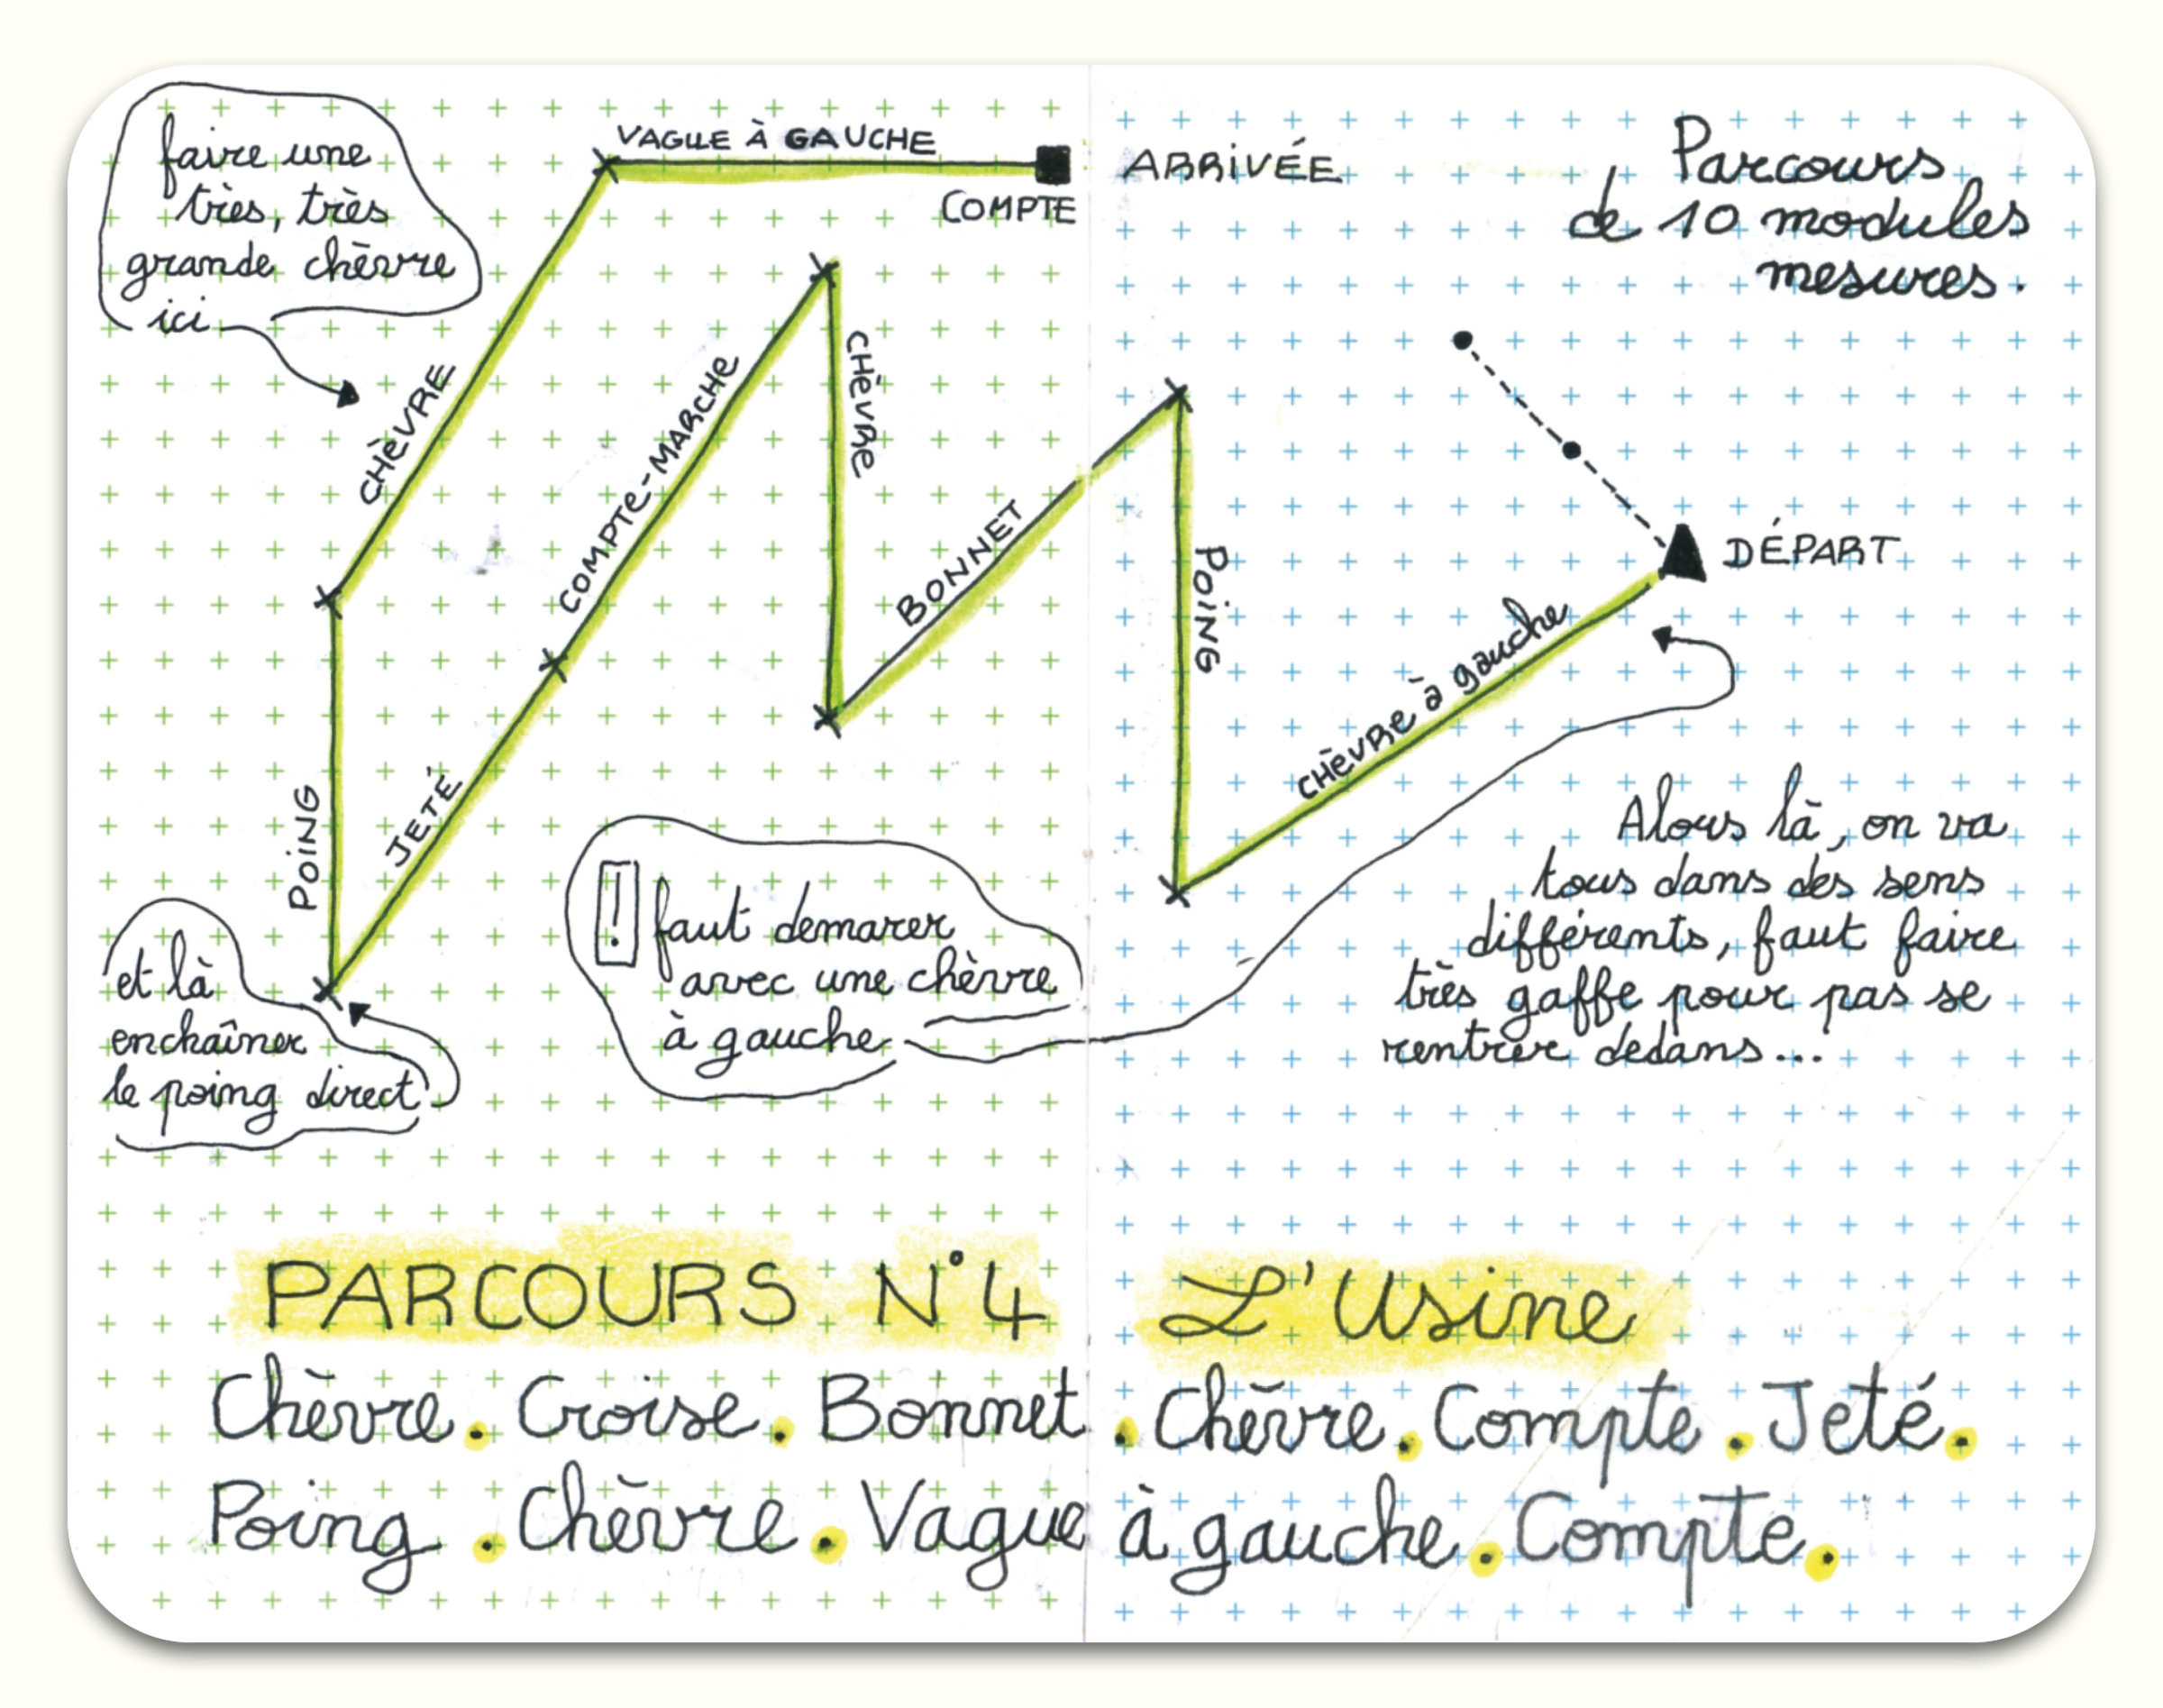 faire une
très, très
grande chèvre
ici
VAGUE À GAUCHE
COMPTE
ARRIVÉE
Parcours
de 10 modules
mesures.
CHÈVRE
COMPTE-MARCHE
CHÈVRE
BONNET
POING
DÉPART
CHÈVRE à gauche
POING
JETÉ
et là
enchaîner
le poing direct
! faut demarer
avec une chèvre
à gauche
Alors là, on va
tous dans des sens
différents, faut faire
très gaffe pour pas se
rentrer dedans...
PARCOURS N°4 L'Usine
Chèvre. Croise. Bonnet. Chèvre. Compte. Jeté.
Poing. Chèvre. Vague à gauche. Compte.